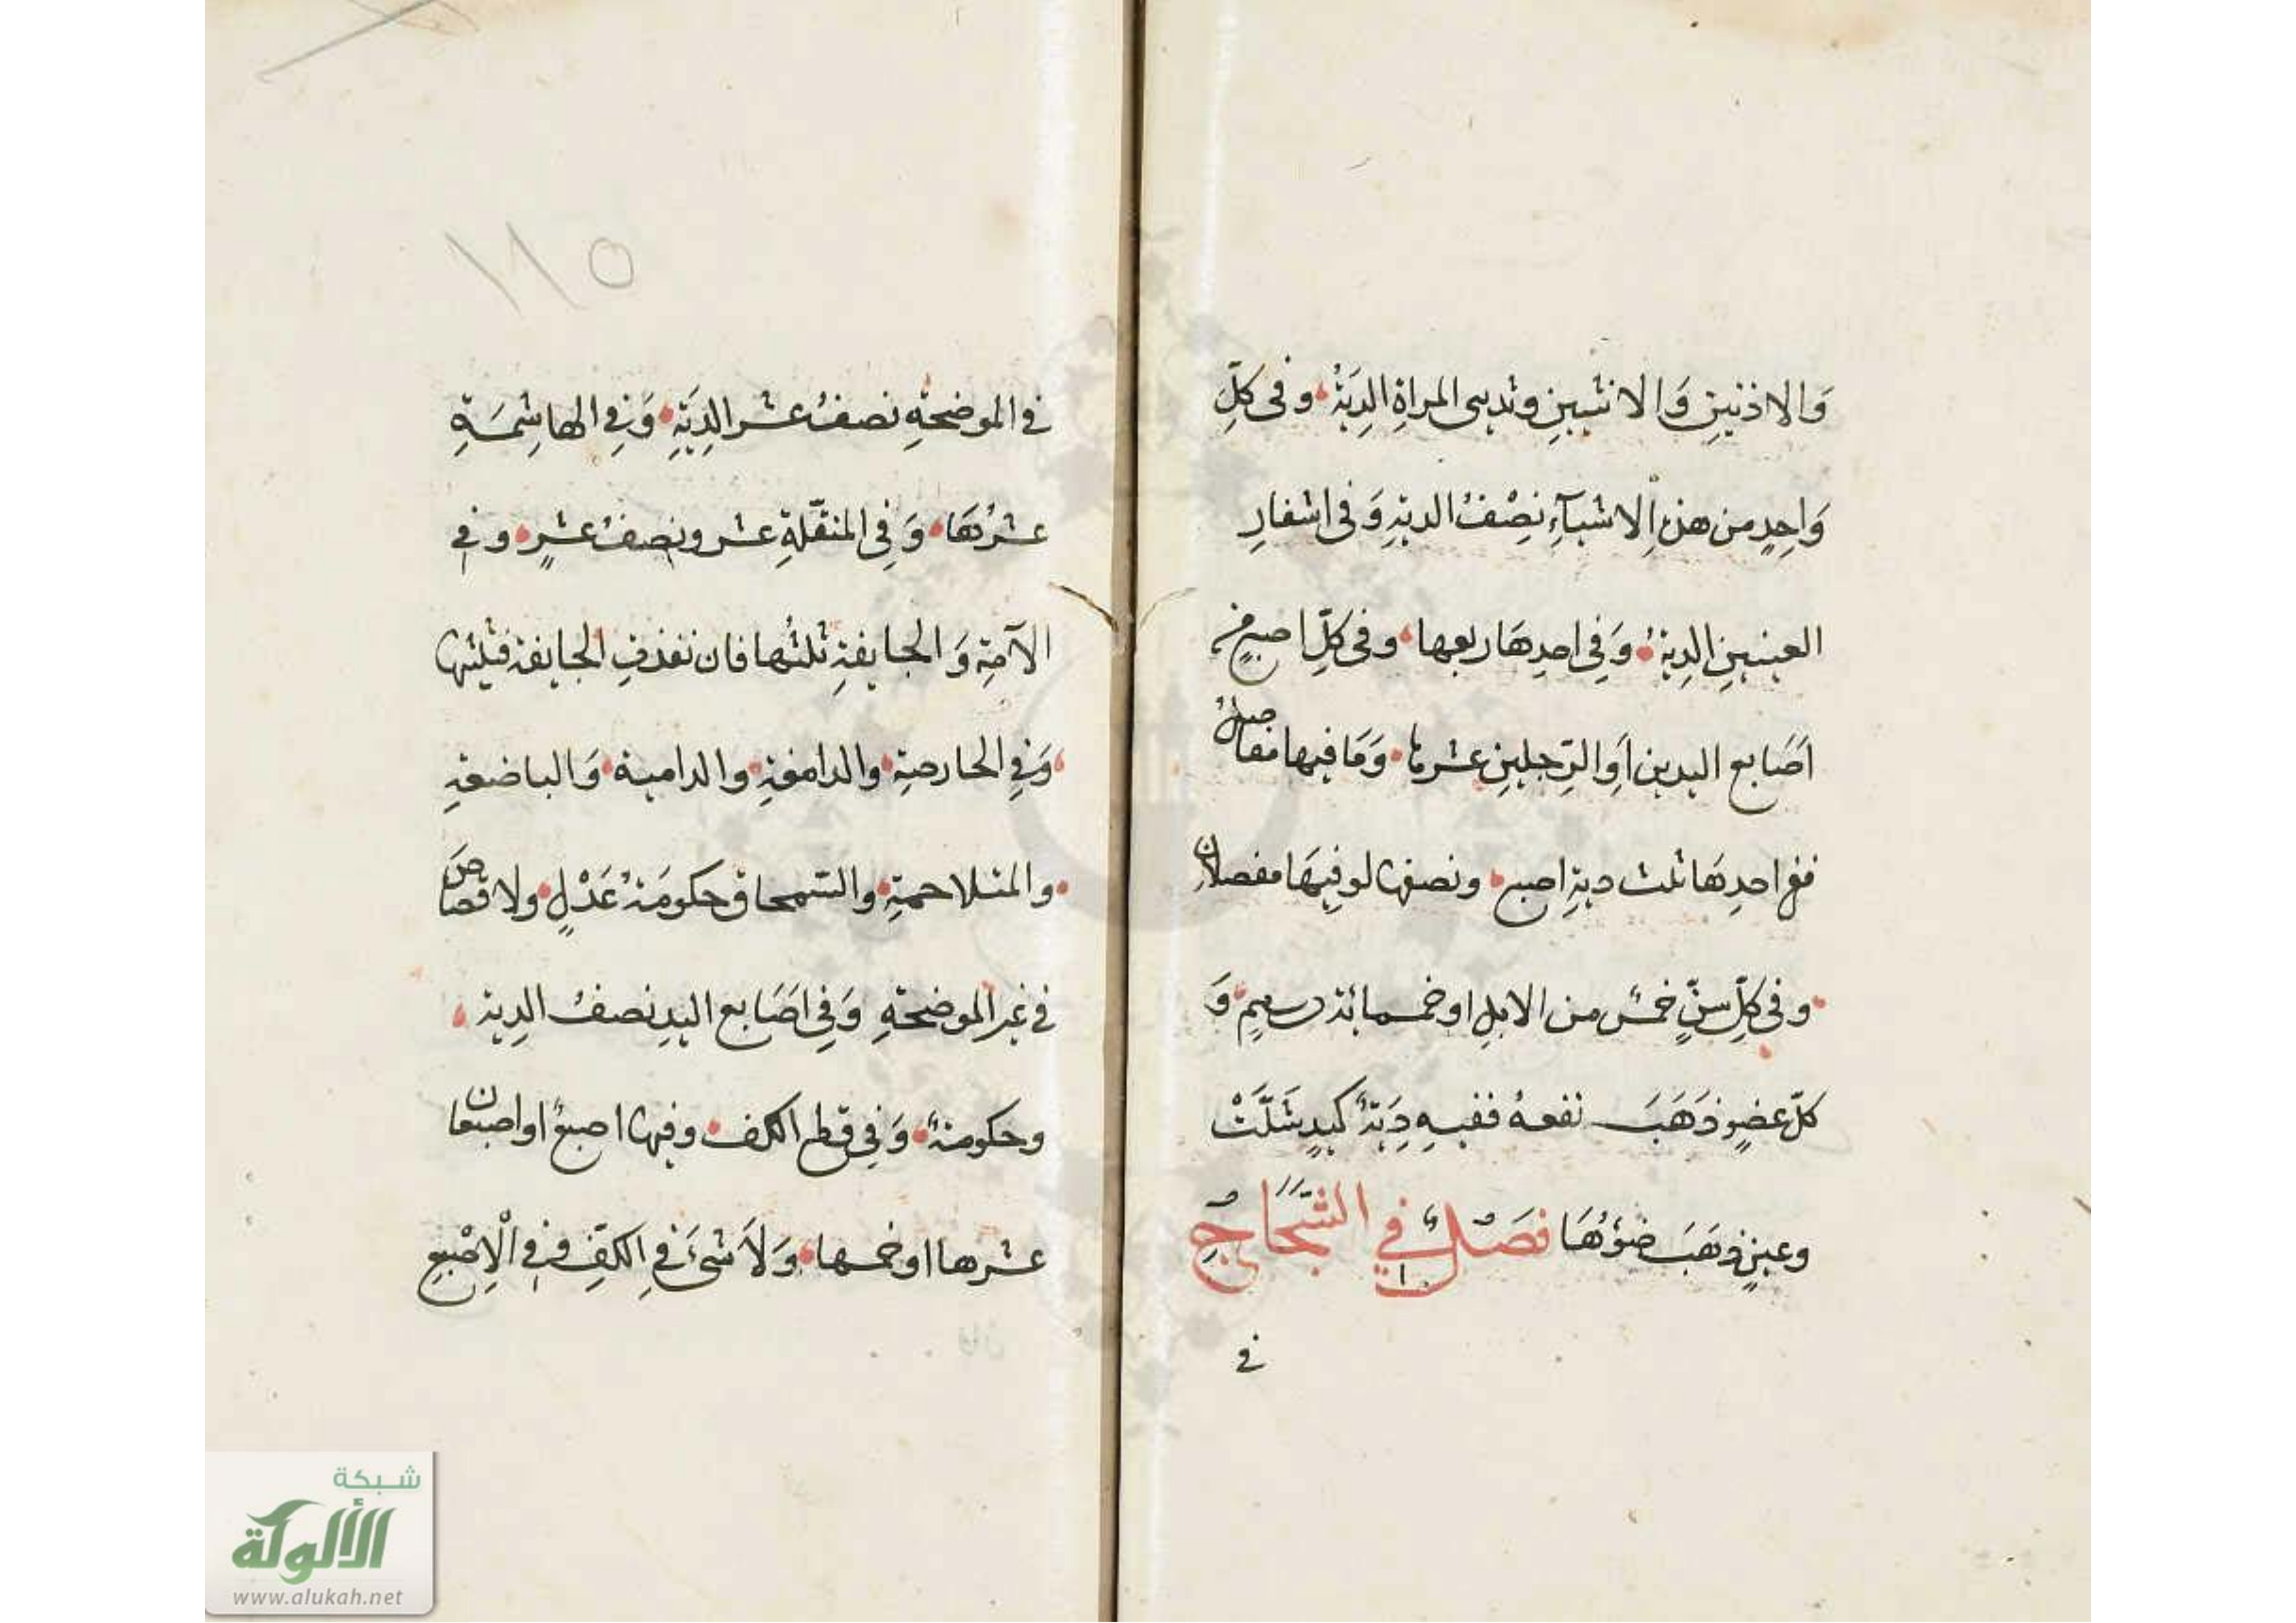 وَالاذنينِ وَالانثيينِ وثديى المراةِ الدِيَةُ وفى كلِّ
وَاحِدٍ من هذهِ الاشيآءِ نِصْفُ الديةِ وَفى اشفارِ
العينينِ الدِيةُ وَفِى احدِهَا ربعها وفى كلِّ اصبعٍ من
اَصَابع اليدين اَوِ الرِّجلينِ عشرها وَمَا فيها مفاصلُ
ففى احدِهَا ثلث ديةِ اصبع ونصفها لو فيهَا مفصلانِ
وفى كلِّ سنٍّ خمسٌ من الابلِ او خمسمائة درهمٍ وَ
كلّ عضوٍ ذَهَبَ نفعهُ ففيهِ دِيَةٌ كيدٍ شَلَّتْ
وعينٍ ذهَبَ ضؤُهَا فَصْلٌ فِي الشَّجَاجِ
فى
١١٥
فى الموضحةِ نصفُ عشر الدِيَةِ وَفِى الهاشِمَةِ
عشرُهَا وَفِى المنقّلةِ عشر ونصفُ عشرٍ وفى
الآمةِ وَالجايفةِ ثلثُها فان نفذت الجايفة فثلثاها
وَفِى الحارصةِ والدامغةِ والدامية وَالباضعةِ
والمتلاحمةِ والسّمحاق حكومَةُ عَدْلٍ ولا قصاصَ
فى غير الموضحةِ وَفِى اصَابع اليدِ نصفُ الدِية
وحكومةٌ وَفِى قطع الكف وفيها اصبعٌ او اصبعان
عشرها او خمسها وَلاَ شىءَ فِى الكفِّ وفى الْاِصْبعِ
شبكة
الألوكة
www.alukah.net